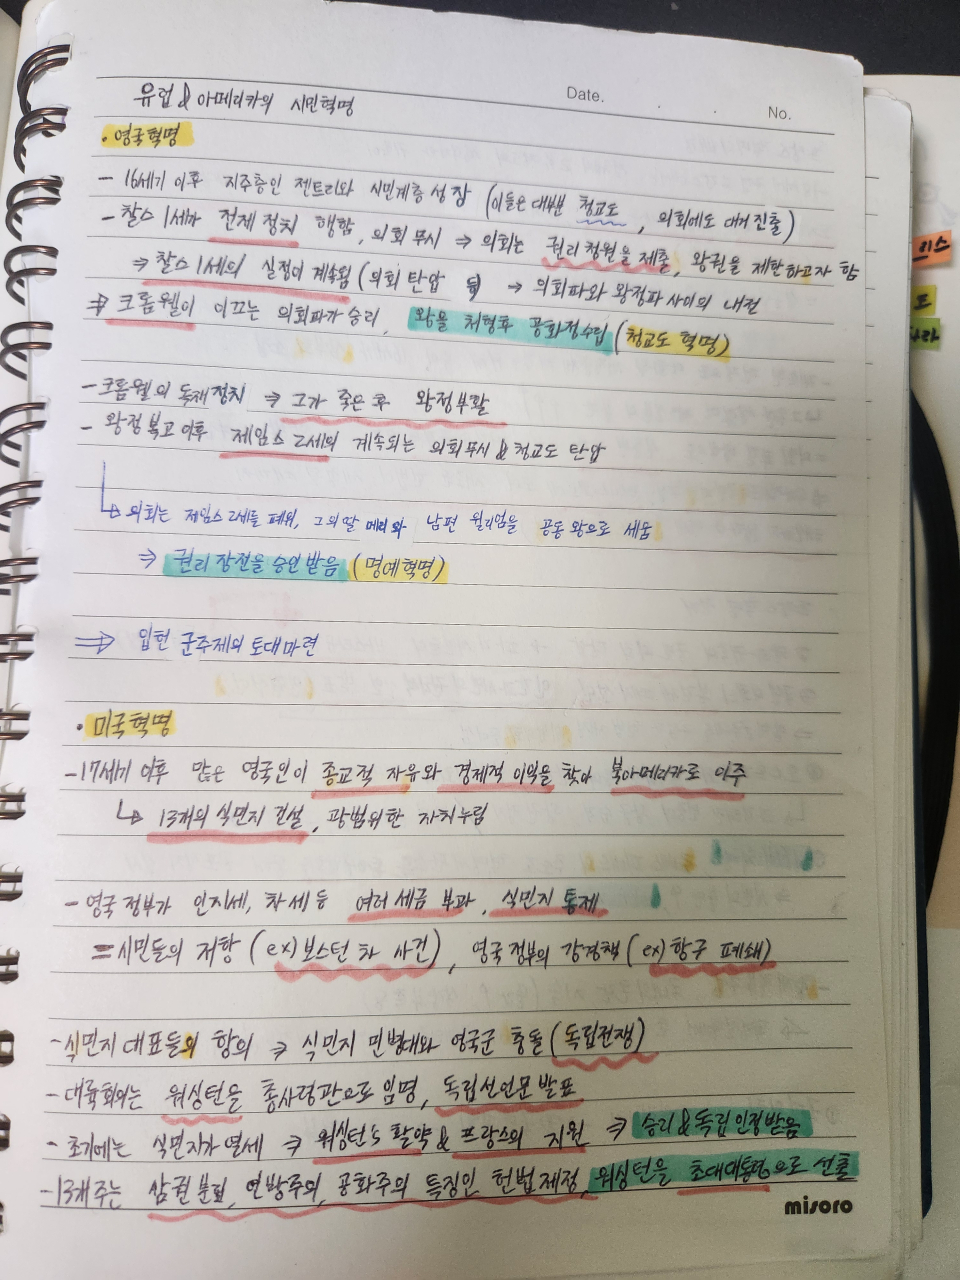 Date. . .
No.
유럽 & 아메리카의 시민혁명
· 영국혁명
- 16세기 이후 지주층인 젠트리와 시민계층 성장 (이들은 대부분 청교도, 의회에도 대거 진출)
- 찰스 1세가 전제 정치 행함, 의회 무시 ⇒ 의회는 권리청원을 제출, 왕권을 제한하고자 함
⇒ 찰스 1세의 실정이 계속됨 (의회 탄압 → 의회파와 왕정파 사이의 내전
⇒ 크롬웰이 이끄는 의회파가 승리, 왕을 처형후 공화정수립 (청교도 혁명)
- 크롬웰의 독재정치 ⇒ 그가 죽은 후 왕정부활
- 왕정복고 이후 제임스 2세의 계속되는 의회무시 & 청교도 탄압
↳ 의회는 제임스 2세를 폐위, 그의 딸 메리와 남편 윌리엄을 공동 왕으로 세움
⇒ 권리 장전을 승인받음 (명예혁명)
⇒ 입헌 군주제의 토대마련
· 미국혁명
- 17세기 이후 많은 영국인이 종교적 자유와 경제적 이익을 찾아 북아메리카로 이주
↳ 13개의 식민지 건설, 광범위한 자치누림
- 영국 정부가 인지세, 차세 등 여러 세금 부과, 식민지 통제
= 시민들의 저항 (ex) 보스턴 차 사건), 영국정부의 강경책 (ex) 항구 폐쇄)
- 식민지 대표들의 항의 ⇒ 식민지 민병대와 영국군 충돌 (독립전쟁)
- 대륙회의는 워싱턴을 총사령관으로 임명, 독립선언문 발표
- 초기에는 식민지가 열세 ⇒ 워싱턴's 활약 & 프랑스의 지원 ⇒ 승리 & 독립 인정받음
- 13개 주는 삼권 분립, 연방주의, 공화주의 특징인 헌법 제정, 워싱턴을 초대대통령으로 선출
misoro